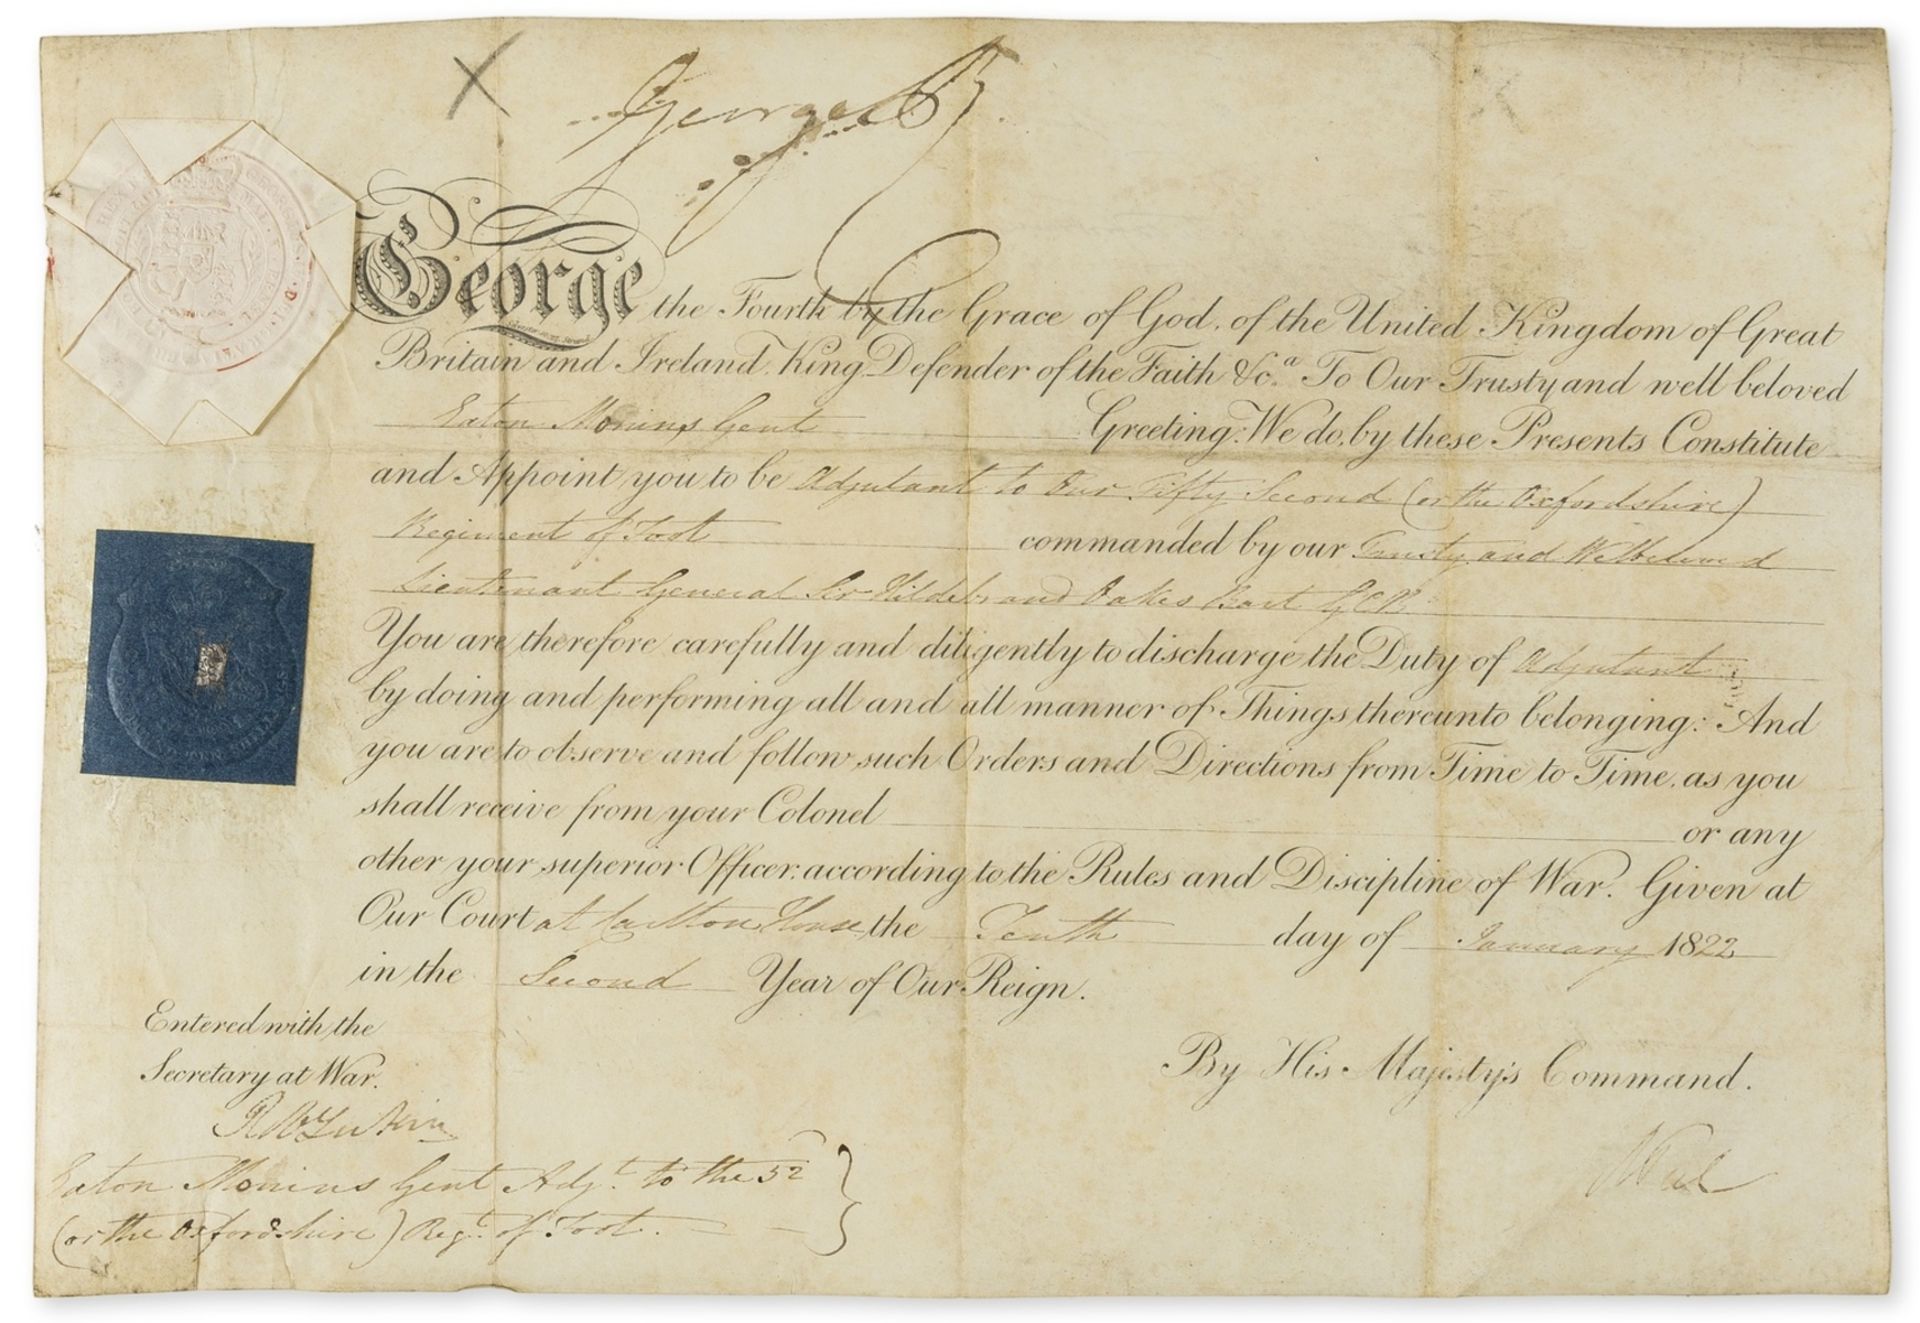 George R
George the Fourth by the Grace of God, of the United Kingdom of Great
Britain and Ireland, King, Defender of the Faith &c.a To Our Trusty and well beloved
Eaton Monins Gent Greeting: We do, by these Presents Constitute
and Appoint you to be Adjutant to Our Fifty Second (or the Oxfordshire)
Regiment of Foot commanded by our Trusty and Welbeloved
Lieutenant General Sir Hildebrand Oakes Bart GCB
You are therefore carefully and diligently to discharge the Duty of Adjutant
by doing and performing all and all manner of Things thereunto belonging: And
you are to observe and follow such Orders and Directions from Time to Time, as you
shall receive from your Colonel or any
other your superior Officer, according to the Rules and Discipline of War. Given at
Our Court at Carlton House, the Tenth day of January 1822
in the Second Year of Our Reign.
Entered with the
Secretary at War.
By His Majesty's Command.
Eaton Monins Gent Adj.t to the 52
(or the Oxfordshire) Reg.t of Foot.